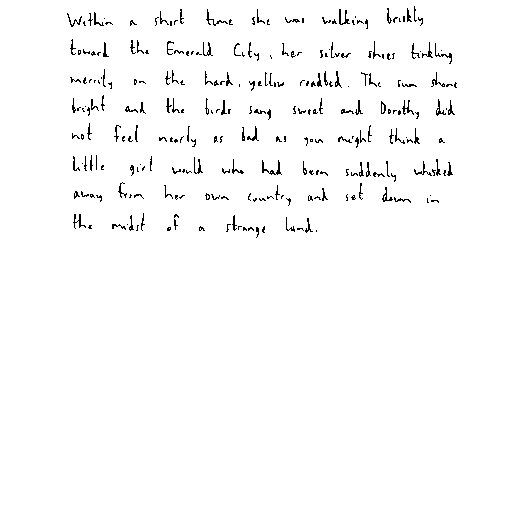 Within a short time she was walking briskly
toward the Emerald City, her silver shoes tinkling
merrily on the hard, yellow roadbed. The sun shone
bright and the birds sang sweet and Dorothy did
not feel nearly as bad as you might think a
little girl would who had been suddenly whisked
away from her own country and set down in
the midst of a strange land.